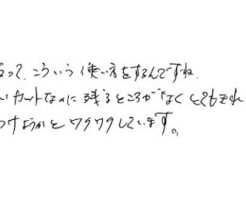 って、こういう使い方をするんですね。
いカットなのに残るところがなくとてもきれ
つけようかとワクワクしています。